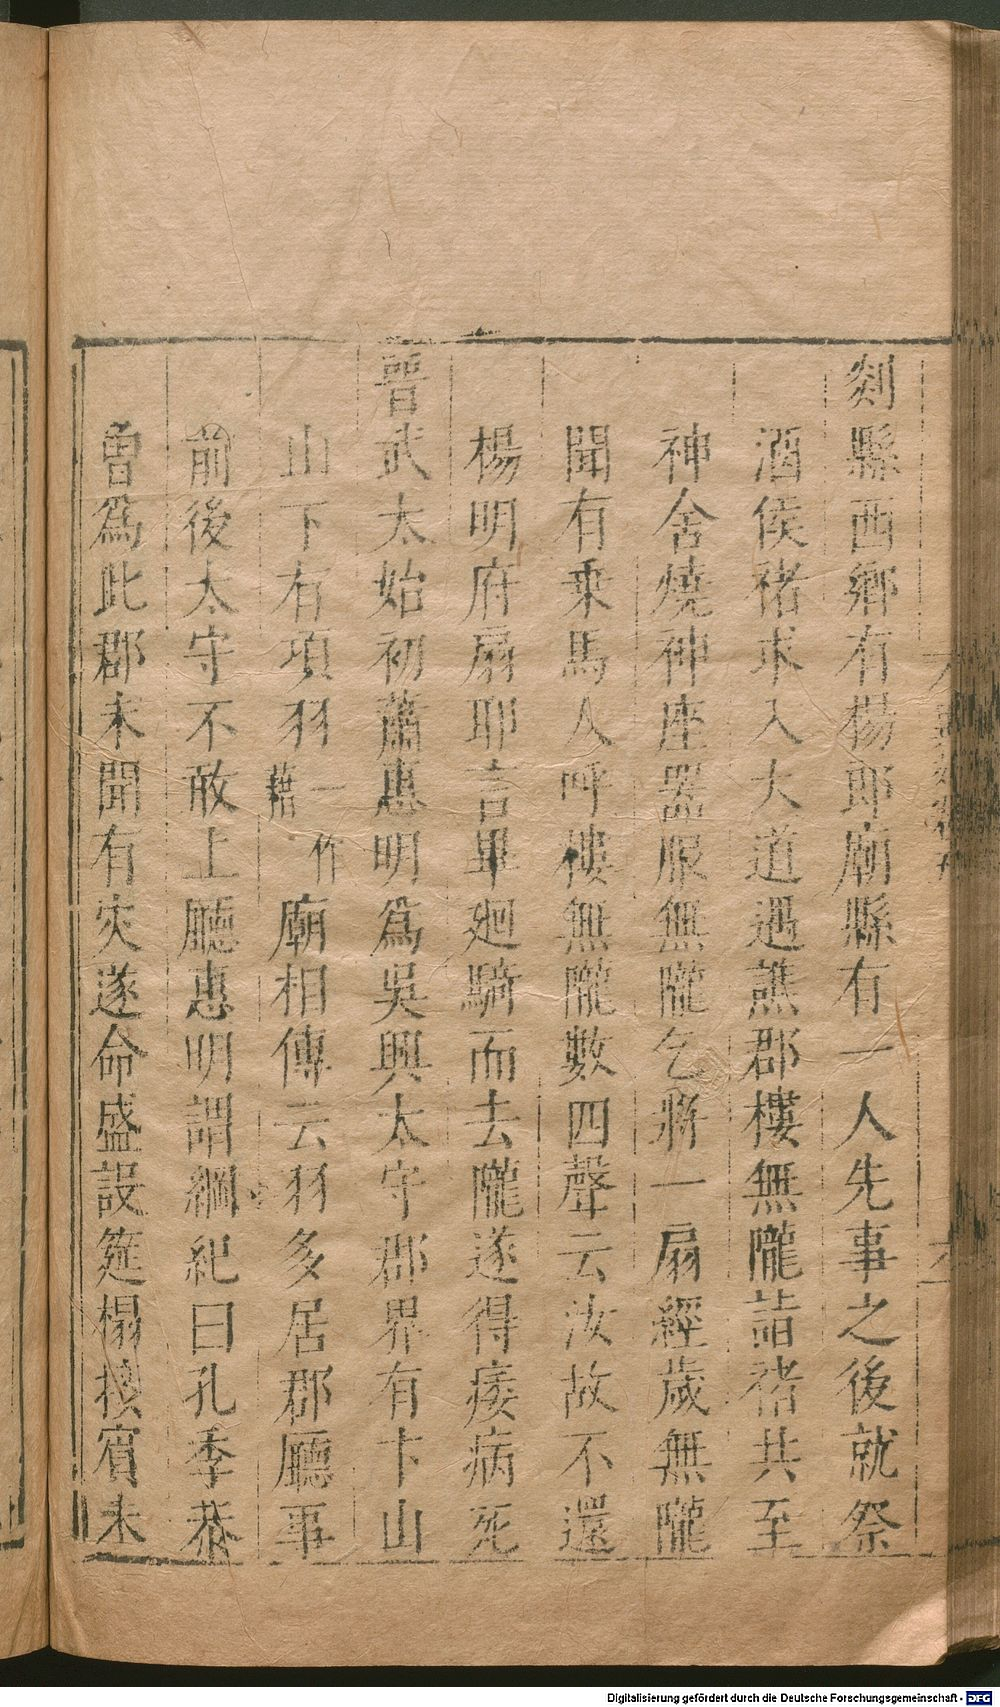 剡縣西鄉有楊郎廟縣有一人先事之後就祭
酒侯褚求入大道遇譙郡樓無隴詣褚共至
神舍燒神座器服無隴乞將一扇經歲無隴
聞有乘馬人呼樓無隴數四聲云汝故不還
楊明府扇耶言畢廻騎而去隴遂得痿病死
晉武太始初蕭惠明爲吳興太守郡界有卞山
山下有項羽一作藉廟相傳云羽多居郡廳事
前後太守不敢上廳惠明謂綱紀曰孔季恭
曾爲此郡未聞有灾遂命盛設筵榻接賓未
Digitalisierung gefördert durch die Deutsche Forschungsgemeinschaft - DFG